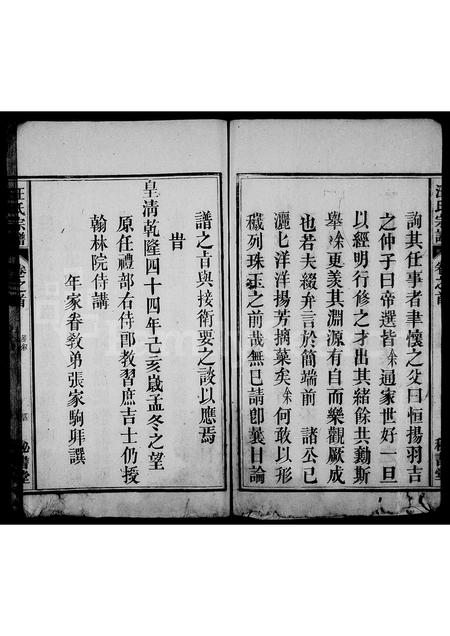 汪氏宗譜
卷之首
詢其任事者聿懷之攵曰恒揚羽吉
之仲子曰帝選皆余通家世好一旦
以經明行修之才出其緒餘共勷斯
舉余更羡其淵源有自而樂觀厥成
也若夫綴弁言於簡端前　諸公已
灑七洋洋揚芳摛菓矣余何敢以形
穢列珠玉之前哉無已請卽曩日論
譜之肯與接衛要之談以應焉
旹
皇清乾隆四十四年己亥歲孟冬之望
原任禮部右侍郎教習庶吉士仍授
翰林院侍講
年家眷教弟張家駒拜譔
汪氏宗譜
卷之首